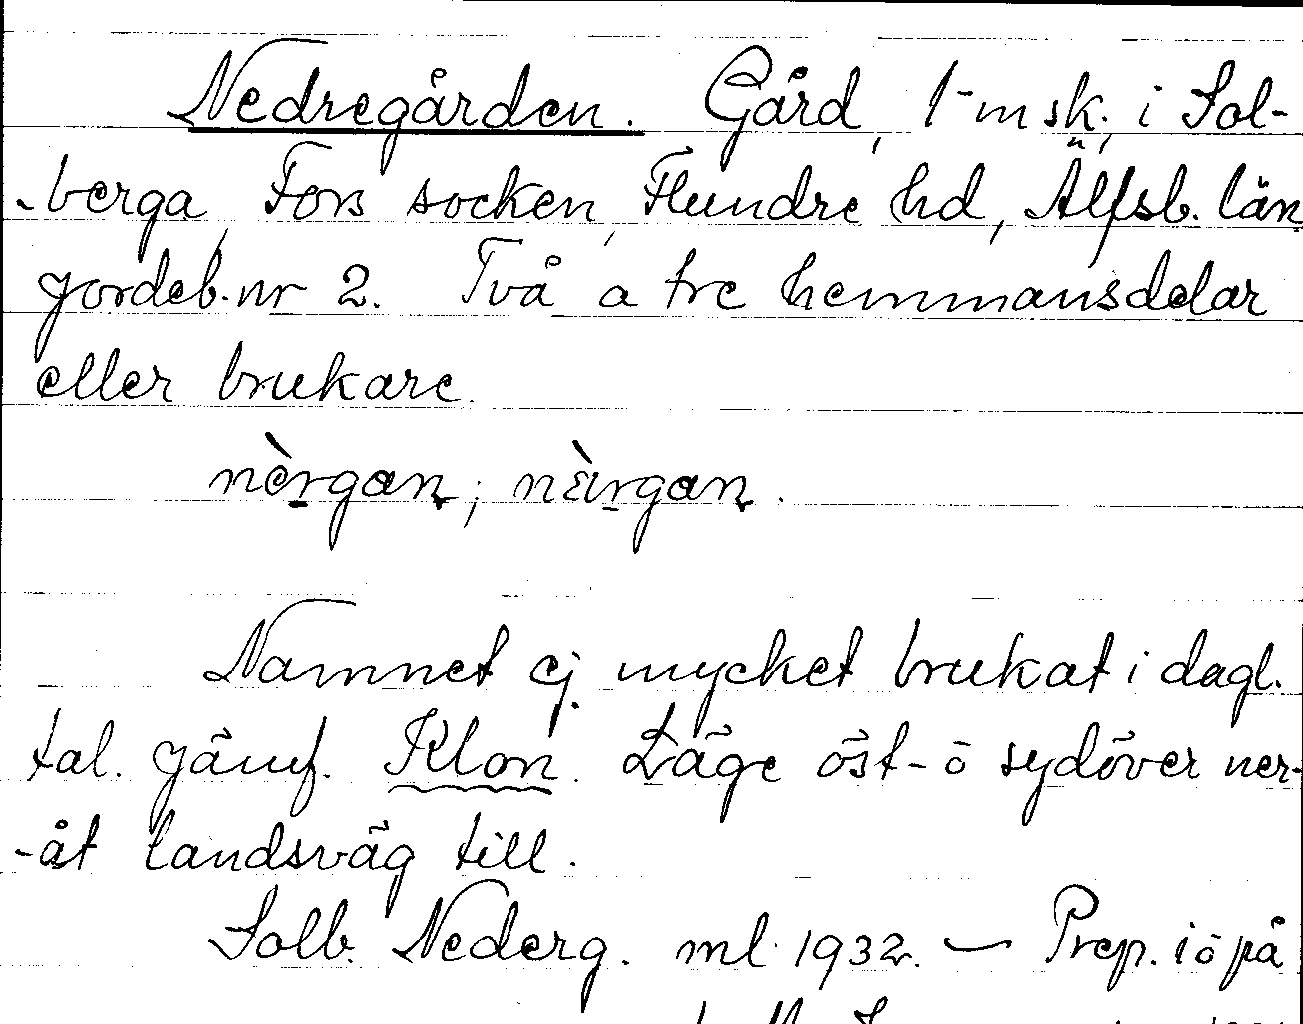 Nedregården. Gård, 1-msk; i Sol-
-berga, Fors socken, Flundre hd, Älfsb. län
jordeb.nr 2. Två a tre hemmansdelar
eller brukare.
nèrgan; nèirgan.
Namnet ej mycket brukat i dagl.
tal. jämf. Klon. Läge öst- ö sydöver ner-
-åt landsväg till.
Solb. Nederg. ml. 1932. — Prep. i ö på